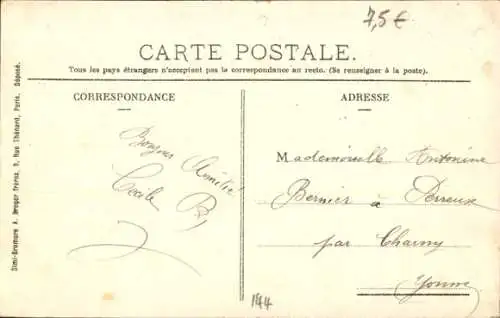 7,5 €
CARTE POSTALE.
Tous les pays étrangers n'acceptent pas la correspondance au recto. (Se renseigner à la poste).
CORRESPONDANCE
ADRESSE
Bonjour Amitié
Cécile B
Mademoiselle Antonine
Bernier à Perreux
par Charny
Yonne
144
Simi-Bromure A. Breger Frères, 9, Rue Thénard, Paris. Déposé.